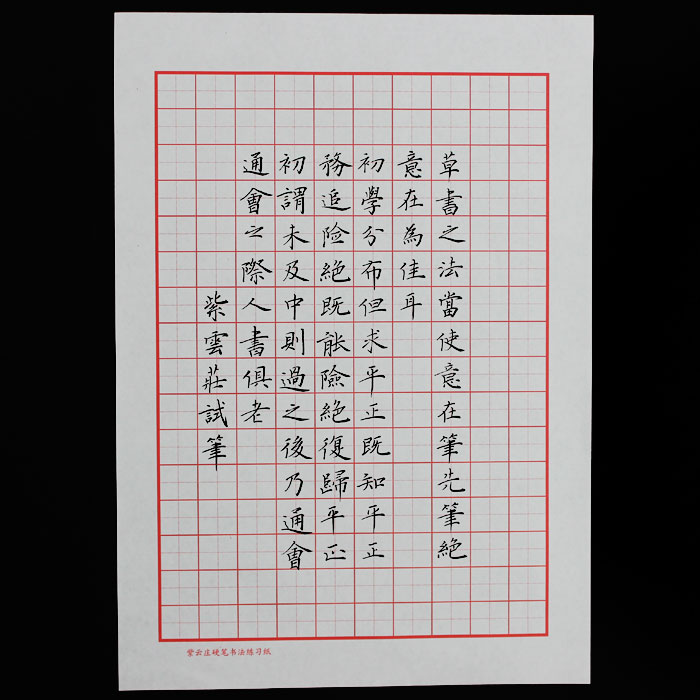 草書之法當使意在筆先筆絕
意在為佳耳
初學分布但求平正既知平正
務追险絕既能險絕復歸平正
初謂未及中則過之後乃通會
通會之際人書俱老
紫雲莊試筆
紫云庄硬笔书法练习纸